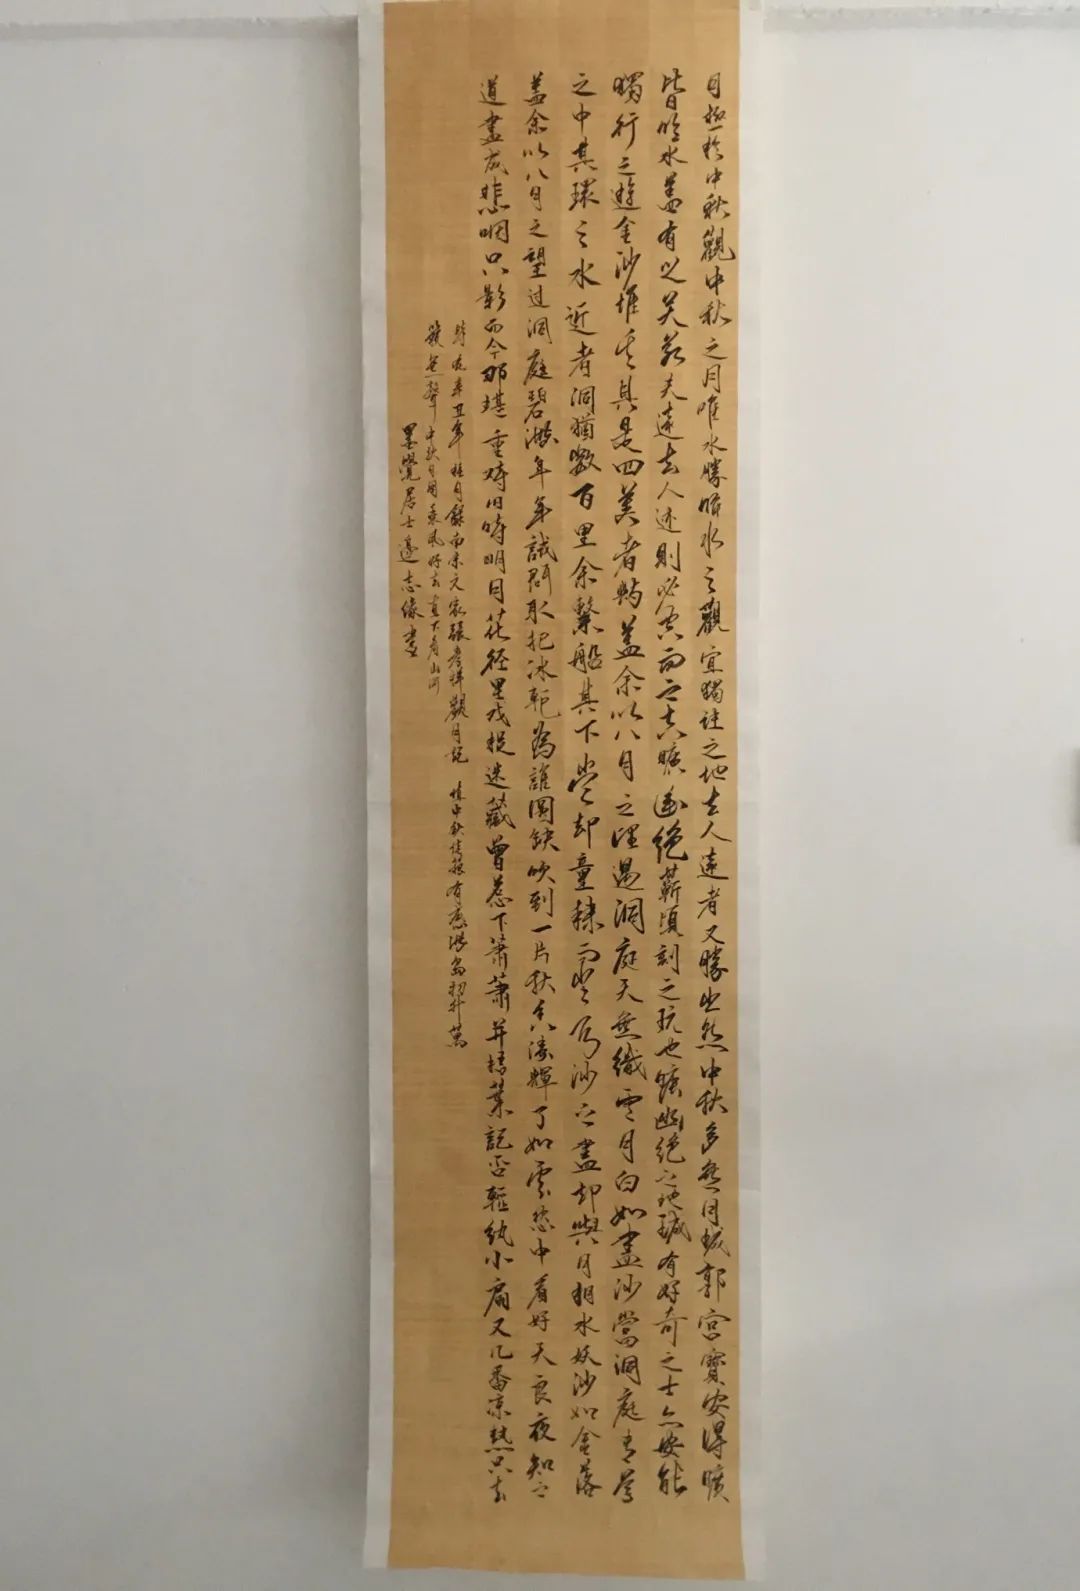 月極於中秋觀中秋之月唯水勝臨水之觀宜獨往之地去人遠者又勝也然中秋多無月城郭宮寶安得曠
皆臨水蓋有之矣若夫遠去人迹則必空曠絕蘄頃刻之玩也幽絕之地誠有好奇之士亦安能
獨行之遊金沙堆其具是四美者蓋余以八月之望過洞庭天無纖雲月白如晝沙當洞庭青草
之中其環之水近者洞猶數百里余繫船其下盡却童隸而登沙之盡却與月相水妖沙如金落
蓋余以八月之望过洞庭碧海年年試取把冰輪為誰圓缺吹到一片秋香清輝了如雪愁中看好天良夜知之
道盡成悲咽只影而今那堪重对旧時明月花径里戏捉迷藏曾惹下萧萧井梧葉記否輕紈小扇又几番凉熱只去
辛丑年桂月錄南宋文張孝祥觀月記 中秋佳有感出初升萬
中秋月乘風好去直下看山河
墨覺居士邊志書